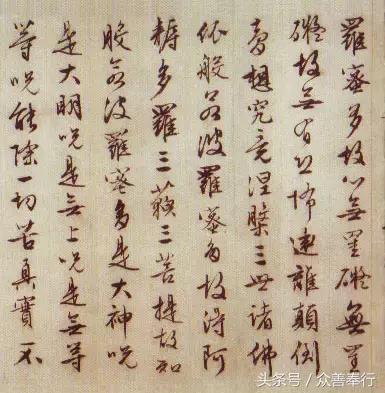 羅蜜多故心無罣礙無罣
礙故無有恐怖遠離顛倒
夢想究竟涅槃三世諸佛
依般若波羅蜜多故得阿
耨多羅三藐三菩提故知
般若波羅蜜多是大神呪
是大明呪是無上呪是無等
等呪能除一切苦真實不
头条号 / 众善奉行